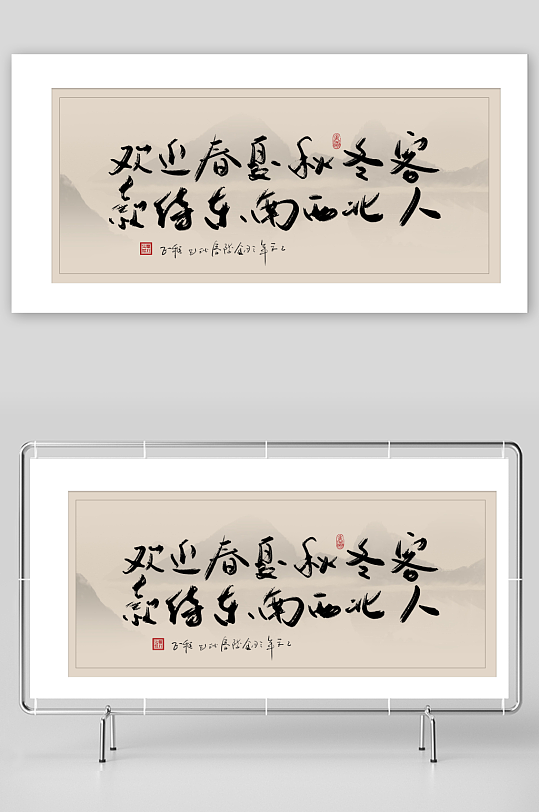 欢迎春夏秋冬客
款待东南西北人
欢迎春夏秋冬客
款待东南西北人